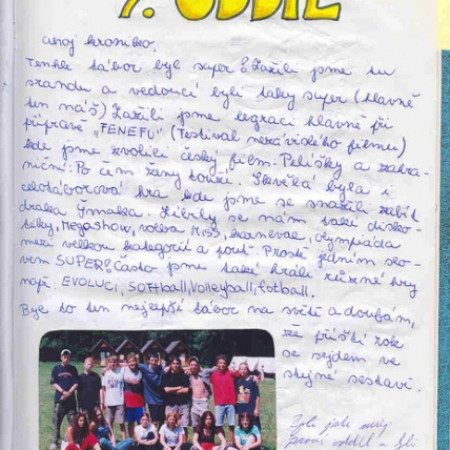 7. ODDÍL
Ahoj kroniko.
Tenhle tábor byl super! Zažili jsme tu
srandu a vedoucí byli taky super (hlavně
ten náš) Zažili jsme legraci hlavně při
přípravě „FENEFU" (Festival nezávislého filmu)
kde jsme zvolili český film: Pelíšky a zahra-
niční: Po čem ženy touží. Skvělá byla i
celotáborová hra kde jsme se snažili zabít
draka Šmaka. Líbily se nám také disko-
téky, Megashow, volba Miss, karneval, olympiáda
mezi velkou kategorií a pouť. Prostě jedním slo-
vem SUPER! Často jsme také hráli různé hry
např. EVOLUCI, SOFTball, Volleyball, fotball.
Byl to ten nejlepší tábor na světě a doufám,
že příští rok
se sejdem ve
stejné sestavě.
Byli jste můj
první oddíl